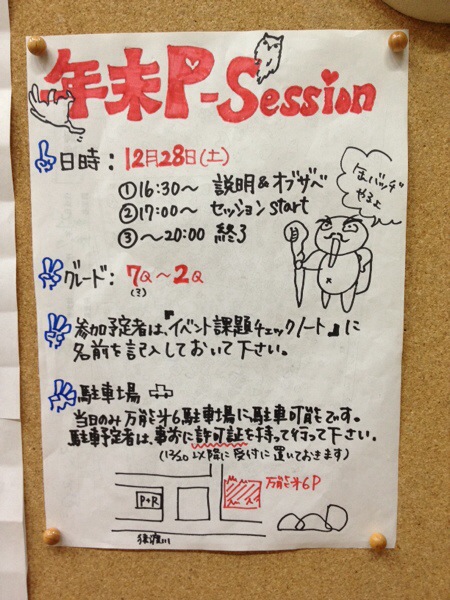 年末P-Session
日時：12月28日(土)
①16:30～ 説明&オブザベ
②17:00～ セッションstart
③～20:00 終了
缶バッヂ
やるよ
グレード：7Q～2Q
(3)
参加予定者は、『イベント課題チェックノート』に
名前を記入しておいて下さい。
駐車場
当日のみ万能第6駐車場に駐車可能です。
駐車予定者は、事前に許可証を持って行って下さい。
(12/20以降に受付に置いておきます)
P+R
万能第6P